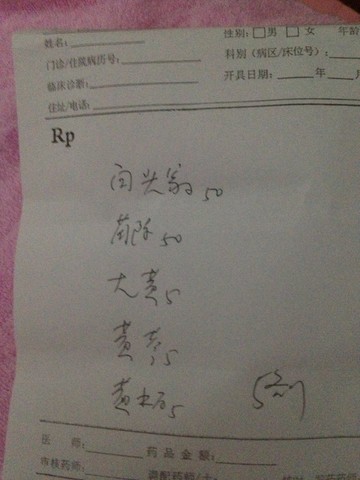 姓名: 性别: □男 □女 年龄
门诊/住院病历号: 科别(病区/床位号):
临床诊断: 开具日期: 年 月
住址/电话:
Rp
白头翁 50
茵陈 50
大黄 5
黄芩 5
黄柏 5 5剂
医 师: 药品金额:
审核药师: 调配药师/士: